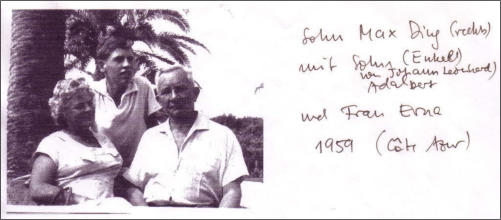 Sohn Max Ding (rechts)
mit Sohn (Enkel
von Johann Leonhard)
Adalbert
und Frau Erna
1959 (Côte Azur)